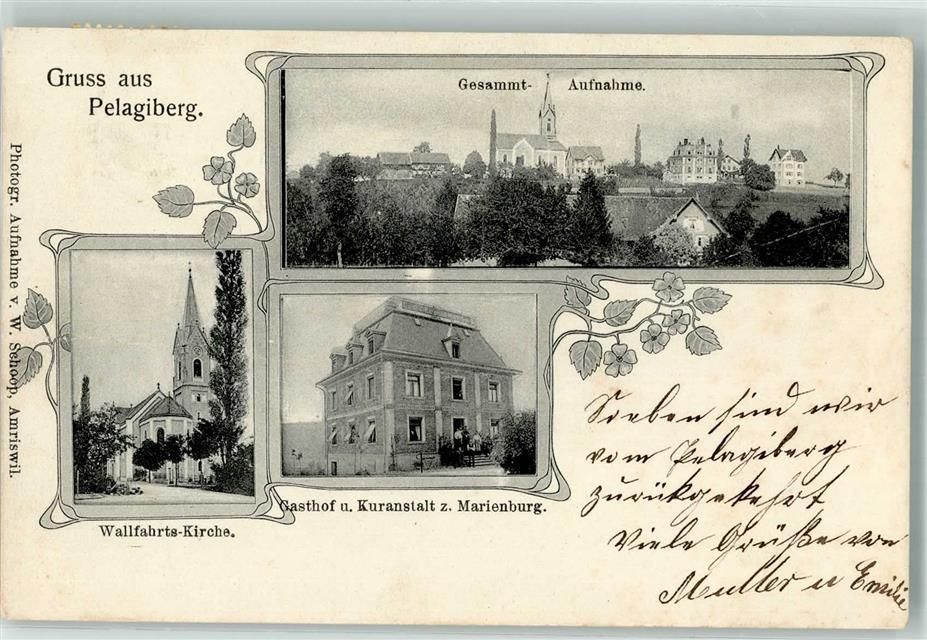 Gruss aus
Pelagiberg.
Gesammt- Aufnahme.
Photogr. Aufnahme v. W. Schoop, Amriswil.
Wallfahrts-Kirche.
Gasthof u. Kuranstalt z. Marienburg.
Soeben sind wir
vom Pelagiberg
zurückgekehrt
Viele Grüße von
Mutter u Emilie